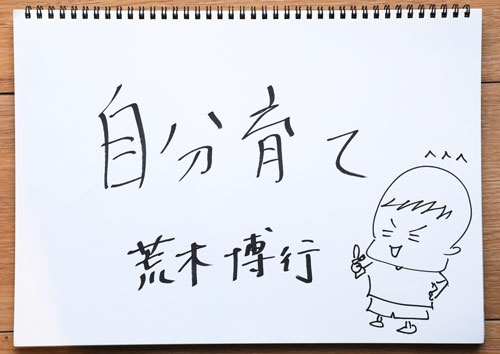 自分育て
荒木博行